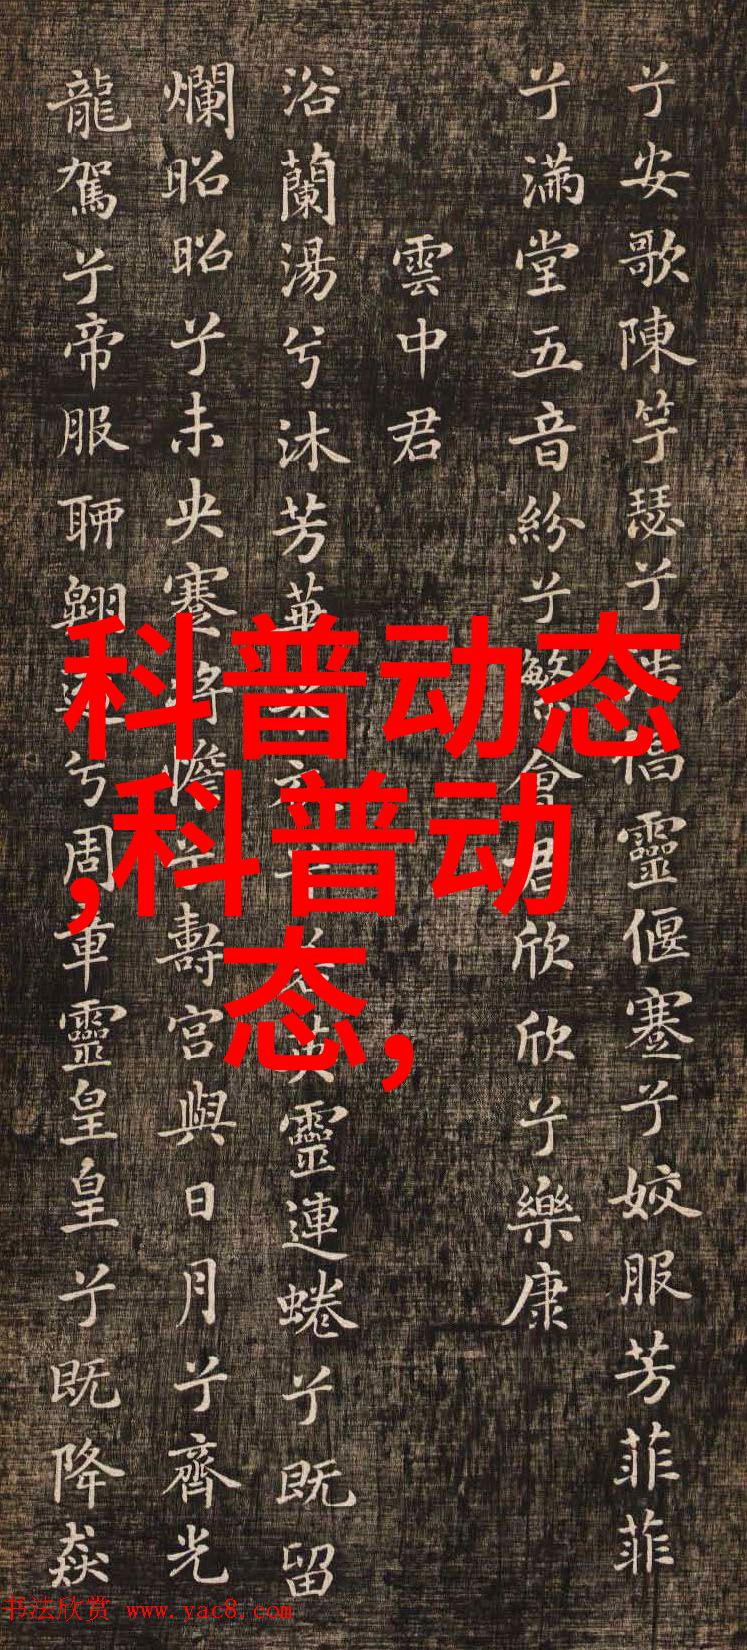 兮安歌陳竽瑟兮浩倡靈偃蹇兮姣服芳菲菲
兮滿堂五音紛兮繁會君欣欣兮樂康
雲中君
浴蘭湯兮沐芳華采衣兮若英靈連蜷兮既留
爛昭昭兮未央蹇將憺兮壽宮與日月兮齊光
龍駕兮帝服聊翱遊兮周章靈皇皇兮既降猋
科普动态
,科普动
态,
书法欣赏 www.yac8.com